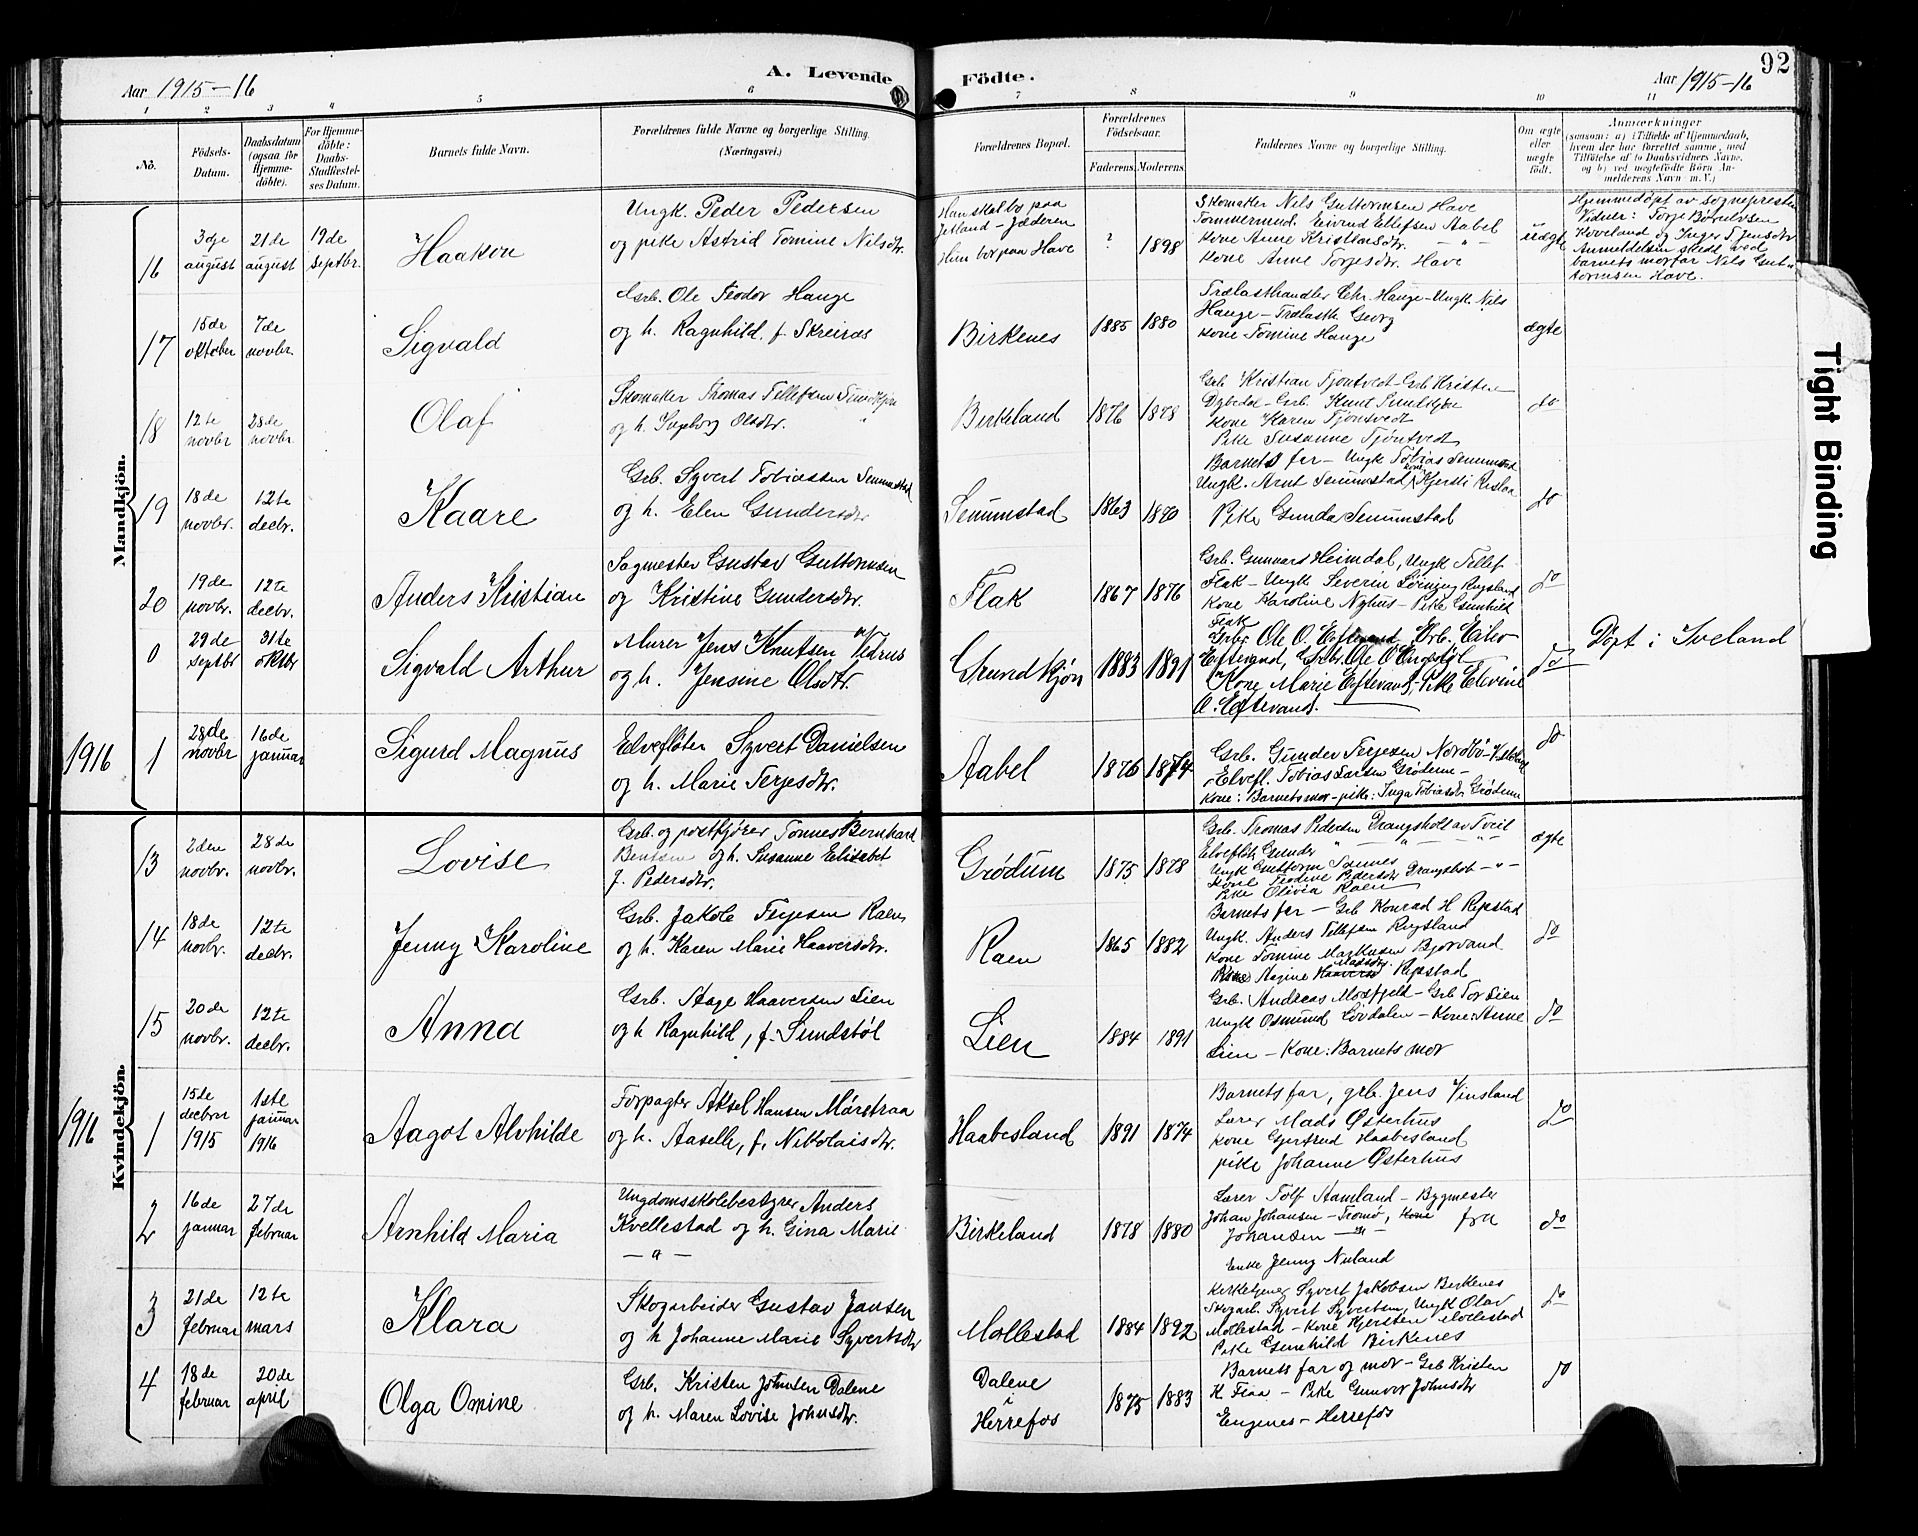 92
A. Levende Födte.
Aar 1915–16
Aar 1915–16
1 2 3 4 5 6 7 8 9 10 11
No.
Födsels-Datum.
Daabsdatum (ogsaa for Hjemmedöbte).
For Hjemmedöbte: Daabs-Stadfæstelses Datum.
Barnets fulde Navn.
Forældrenes fulde Navne og borgerlige Stilling. (Næringsvei.)
Forældrenes Bopæl.
Forældrenes Födselsaar.
Faderens. Moderens.
Faddernes Navne og borgerlige Stilling.
Om ægte eller uægte födt.
Anmærkninger
(saasom: a) i Tilfælde af Hjemmedaab, hvem der har forrettet samme, med Tilföielse af to Daabsvidners Navne, og b) ved uegtefödte Börn Anmelderens Navn m. V.)
Mandkjön.
16
3dje august
21de august
19de septbr.
Haakon
Ungk. Peder Pedersen
og pike Astrid Tomine Nilsdtr.
Han skal bo paa
Jelland – Jæderen
Hun bor paa Have
? 1898
Skomaker Nils Guttormsen Have
Tømmermand. Eivind Ellefsen Aabel
Kone Anne Kristensdtr. – " –
Kone Anne Torjesdtr. Have
uægte
Hjemmedöpt av sognepresten
Vidner: Torje Bövelvsen
Koveland og Inger T. Jensdtr
Anmeldelsen skedt ved
barnets morfar Nils Gut-
tormsen Have.
17
15de oktober
7de novbr.
Sigvald
Grb. Ole Teodor Hauge
og h. Ragnhild, f. Skreiros
Birkenes
1885 1880
Trælasthandler Chr. Hauge – Ungk. Nils
Hauge – Trælasth. Georg
Kone Tomine Hauge
ægte
18
12te novbr
28de novbr.
Olaf
Skomaker Thomas Tellefsen Sundkjön
og h. Ingeborg Olsdtr.
Birkeland
1876 1878
Grb Kristian Tjöntvedt – Grb Kristen
Dybedal – Grb. Knut Sundkjön
Kone Karen Tjöntvedt
Pike Susanne Tjöntvedt
do
19
18de novbr.
12te decbr.
Kaare
Grb. Syvert Tobiassen Senumstad
og h. Elen Gundersdtr
Senumstad
1863 1870
Barnets far – Ungk Tobias Senumstad
Ungk. Arnt Senumstad, kone Kjersti Risla
Pike Gunda Senumstad
do
20
19de novbr.
12te decbr.
Anders Kristian
Sagmester Gustav Guttormsen
og Kristine Gundersdtr.
Flak
1867 1876
Grb. Gunnars Heimdal, Ungk Tellef
Flak – Ungk Severin Rugsland
Kone Karoline Nyhus – Pike Gunhild
Flak
do
0
29de septbr
31te oktbr
Sigvald Arthur
Murer Jens Knutsen Vedrus
og h. Jensine Olsdtr.
Grundkjön
1883 1891
Grbr Ole O. Eftevand Grb.
Eftevand, Grbr. Ole O Engestøl
Kone Marie Eftevand – Pike Elevine
O. Eftevand.
do
Döpt i Iveland
1916
1
28de novbr
16de januar
Sigurd Magnus
Elvefløter Syvert Danielsen
og h. Marie Terjesdtr.
Aabel
1876 1874
Grb. Gunder Terjesen Nordbö
Elvefl. Tobias Larsen Grødum –
Kone: Barnets mor – pike: Inga Tobiasdtr Grødum
do
Kvindekjön.
13
2den novbr.
28de novbr.
Lovise
Grb. og postfjører Tønnes Bernhard
Bentsen og h. Susanne Elisabet
f. Pedersdtr.
Grødum
1875 1878
Grb. Thomas Pedersen Drangsholt av Tveit
Elvefløt. Gunder " – " – " –
Ungk Guttorm Tønnes
Kone Teodine Pedersdtr Drangsholt – " –
Pike Olivia Raen
ægte
14
18de novbr.
12te decbr.
Jenny Karoline
Grb. Jakob Terjesen Raen
og h. Karen Marie Haaversdtr.
Raen
1865 1882
Barnets far – Grb Konrad H Repstad
Ungk. Anders Tellefsen Rugsland
Kone Tomine Markusen Bjorvand
Kone Tagine Madsdtr. Repstad
do
15
20de novbr.
12te decbr.
Anna
Grb. Aage Haaversen Lien
og h Ragnhild, f. Sundstøl
Lien
1884 1891
Grb. Andreas Mosfjeld – Grb Tor Lien
Ungk Osmund Lövdalen – Kone: Anne
Lien – Kone: Barnets mor
do
1916
1
15de decbr 1915
1ste januar 1916
Aagot Alvhilde
Forpagter Aksel Hansen Mørstraa
og h. Aaselle, f. Nikolaisdtr.
Haabesland
1891 1874
Barnets far, grb. Jens Vinsland
Lærer Mads Østerhus
Kone Gjertrud Haabesland
pike Johanne Østerhus
do
2
16de januar
27de februar
Arnhild Maria
Ungdomsskolebestyrer Anders
Kvellestad og h. Gina Marie
– " –
Birkeland
1878 1880
Lærer Tolf Aamland – Bygmester
Johan Johansen – Tromø, fru
Johansen – " –
Enke Jenny Nuland
do
3
21de februar
12te mars
Klara
Skogarbeider Gustav Jansen
og h Johanne Marie Syvertsdtr
Mollestad
1884 1892
Kirketjener Syvert Jakobsen Birkenes
Skogarb. Syvert Syvertsen, Ungk Olav
Mollestad – Kone Kjersten Mollestad
Pike Gunhild Birkenes
do
4
18de februar
20de april
Olga Omine
Grb. Kristen Johnsen Dalene
og h. Maren Lovise Johnsdtr.
Dalene
i
Herrefos
1875 1883
Barnets far og mor – Grb Kristen
K. Fiaa – Pike Gunvor Johnsdtr
Engenes – Herrefos
do
Tight Binding